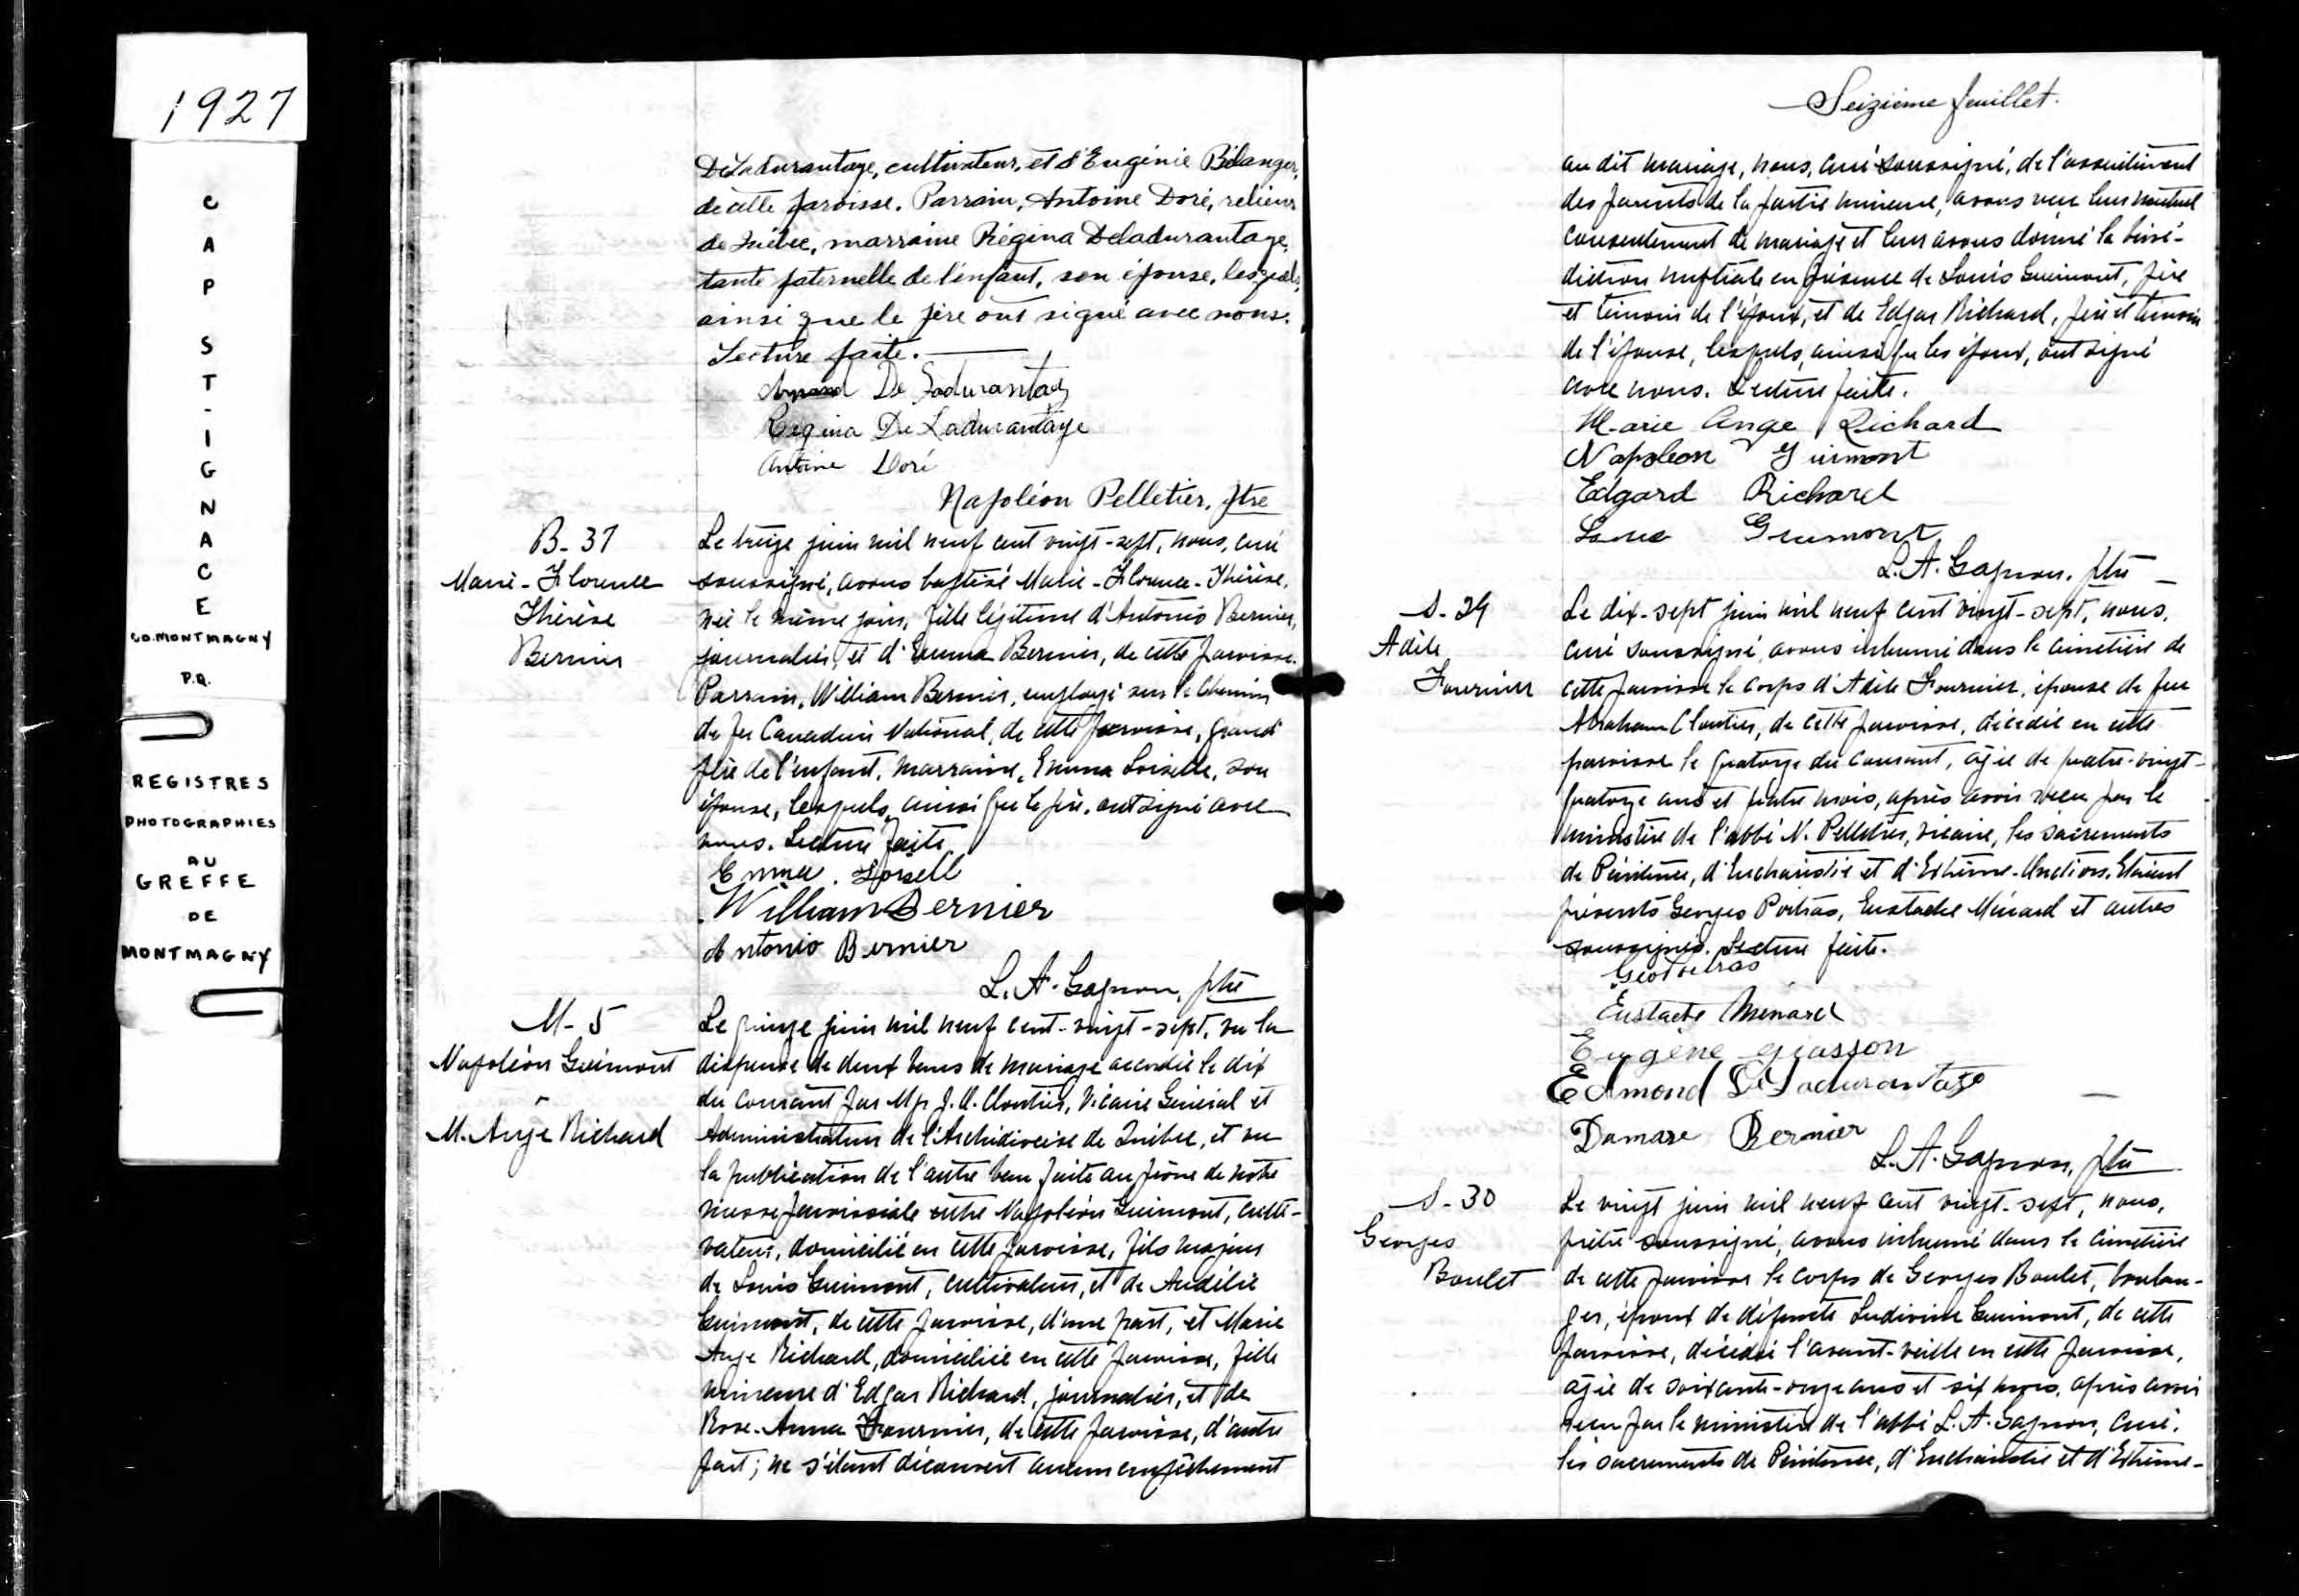 1927
CAP ST-IGNACE
CO. MONTMAGNY
P.Q.
REGISTRES
PHOTOGRAPHIES
AU
GREFFE
DE
MONTMAGNY
DeLadurantaye, cultivateur, et d'Eugénie Bélanger,
de cette paroisse. Parrain, Antoine Doré, relieur
de Québec, marraine Régina Deladurantaye,
tante paternelle de l'enfant, son épouse, lesquels,
ainsi que le père ont signé avec nous.
Lecture faite.
De Ladurantaye
Régina De Ladurantaye
Antoine Doré
Napoléon Pelletier, ptre
B-37
Marie-Florence
Thérèse
Bernier
Le treize juin mil neuf cent vingt-sept, nous, curé
soussigné, avons baptisé Marie-Florence-Thérèse,
née le même jour, fille légitime d'Antonio Bernier,
journalier, et d'Emma Bernier, de cette paroisse.
Parrain, William Bernier, employé sur le Chemin
de fer Canadien National, de cette paroisse, grand
père de l'enfant, marraine, Emma Loiselle, son
épouse, lesquels, ainsi que le père, ont signé avec
nous. Lecture faite.
Emma Loisell
William Bernier
Antonio Bernier
L. A. Gagnon, ptre
M-5
Napoléon Guimont
&
M. Ange Richard
Le quinze juin mil neuf cent-vingt-sept, vu la
dispense de deux bans de mariage accordée le dix
du courant par Mgr J. Cloutier, Vicaire Général et
Administrateur de l'Archidiocèse de Québec, et vu
la publication de l'autre ban faite au prône de notre
messe paroissiale entre Napoléon Guimont, culti-
vateur, domicilié en cette paroisse, fils majeur
de Louis Guimont, cultivateur, et de
Guimont, de cette paroisse, d'une part, et Marie
Ange Richard, domiciliée en cette paroisse, fille
mineure d'Edgar Richard, journalier, et de
Rose-Anna Fournier, de cette paroisse, d'autre
part; ne s'étant découvert aucun empêchement
Seizième feuillet.
au dit mariage, nous, curé soussigné, de l'assentiment
des parents de la partie mineure, avons reçu leur mutuel
consentement de mariage et leur avons donné la béné-
diction nuptiale en présence de Louis Guimont, père
et témoin de l'époux, et de Edgar Richard, père et témoin
de l'épouse, lesquels, ainsi que les époux, ont signé
avec nous. Lecture faite.
Marie Ange Richard
Napoleon Guimont
Edgard Richard
Guimont
L. A. Gagnon, ptre
S-29
Adèle
Fournier
Le dix-sept juin mil neuf cent vingt-sept, nous,
curé soussigné, avons inhumé dans le cimetière de
cette paroisse le corps d'Adèle Fournier, épouse de feu
Abraham Cloutier, de cette paroisse, décédée en cette
paroisse le quatorze du courant, âgée de quatre-vingt-
quatorze ans et quatre mois, après avoir reçu par le
ministère de l'abbé N. Pelletier, vicaire, les sacrements
de Pénitence, d'Eucharistie et d'Extrême-Onction. Etaient
présents Georges Poitras, Eustache Ménard et autres
soussignés. Lecture faite.
Geo Poitras
Eustache Ménard
Eugène Giasson
Edmond De Ladurantaye
Damase Bernier
L. A. Gagnon, ptre
S-30
Georges
Boulet
Le vingt juin mil neuf cent vingt-sept, nous,
prêtre soussigné, avons inhumé dans le cimetière
de cette paroisse le corps de Georges Boulet, boulan-
ger, époux de défunte Ludivine Guimont, de cette
paroisse, décédé l'avant-veille en cette paroisse,
âgé de soixante-onze ans et six mois, après avoir
reçu par le ministère de l'abbé L. A. Gagnon, curé,
les sacrements de Pénitence, d'Eucharistie et d'Extrême-